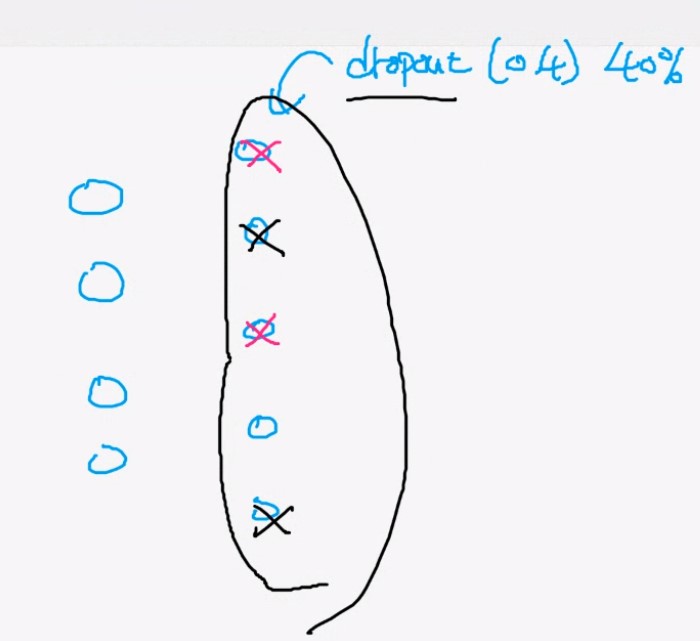 dropout (0.4) 40%